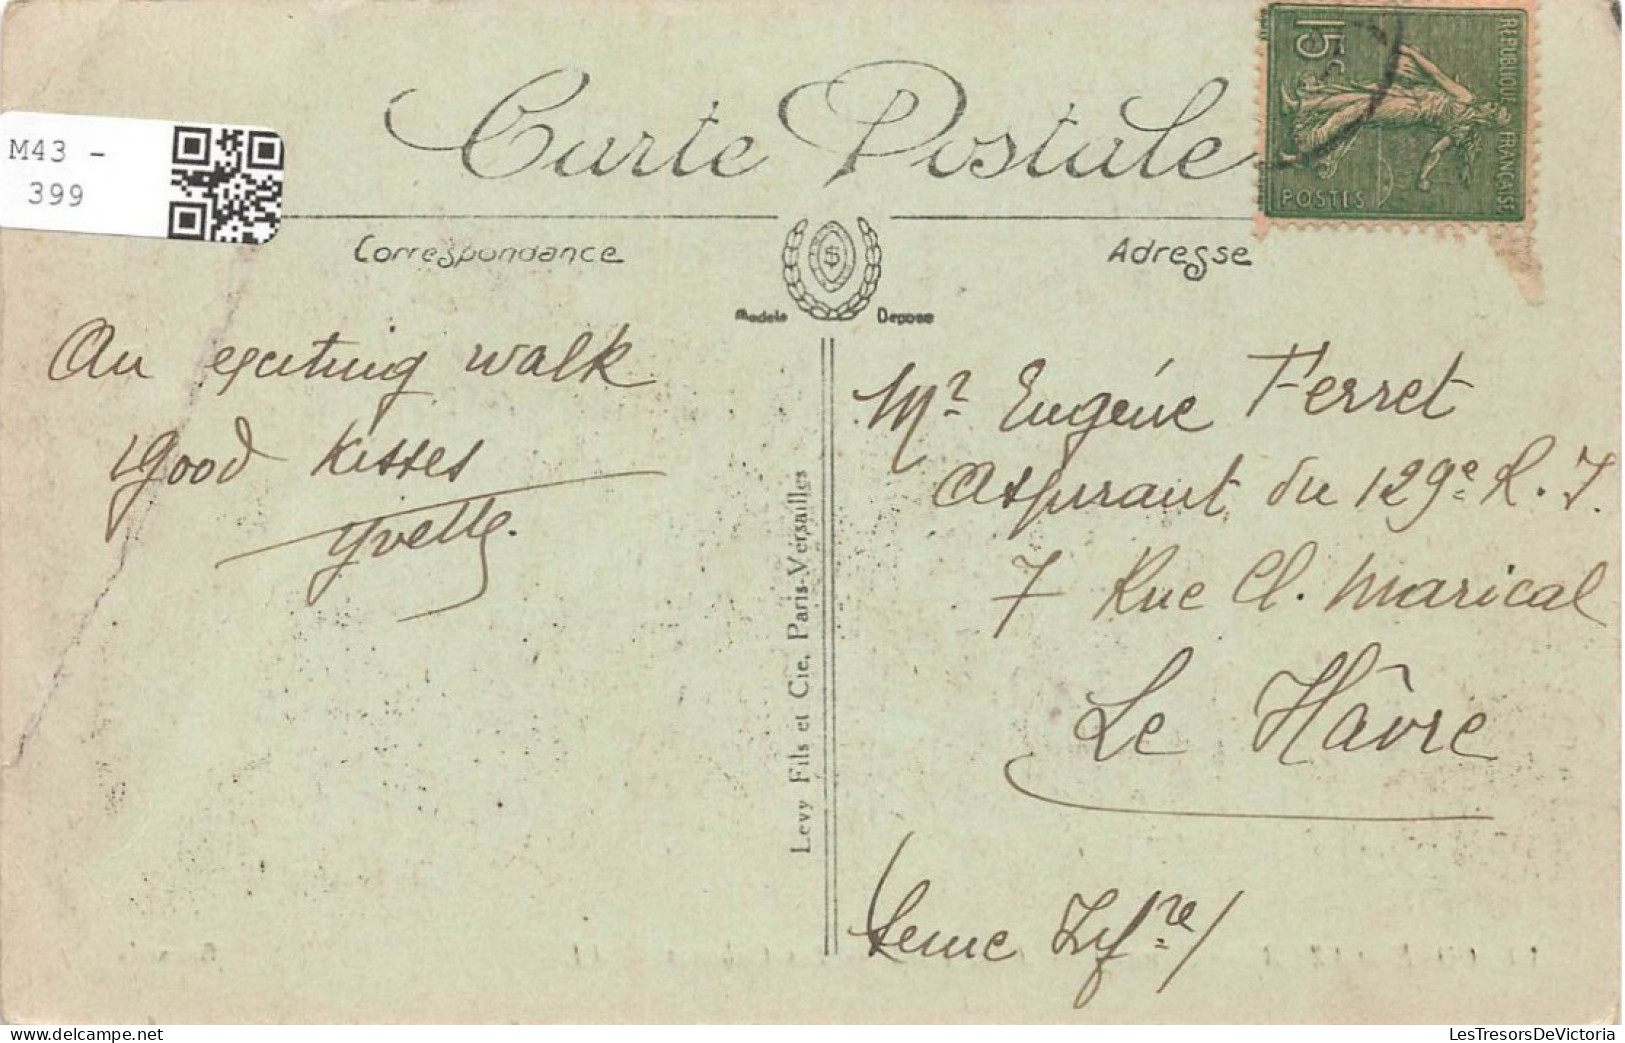 M43 -
399
Carte Postale
15c
REPUBLIQUE FRANÇAISE
POSTES
Correspondance
Adresse
Modele Depose
An exciting walk
Good kisses
Yvette.
Mr Eugène Ferret
Aspirant du 129e R. I.
7 Rue Cl. Marical
Le Hâvre
(Seine Infre)
Levy Fils et Cie, Paris-Versailles
www.delcampe.net
LesTresorsDeVictoria